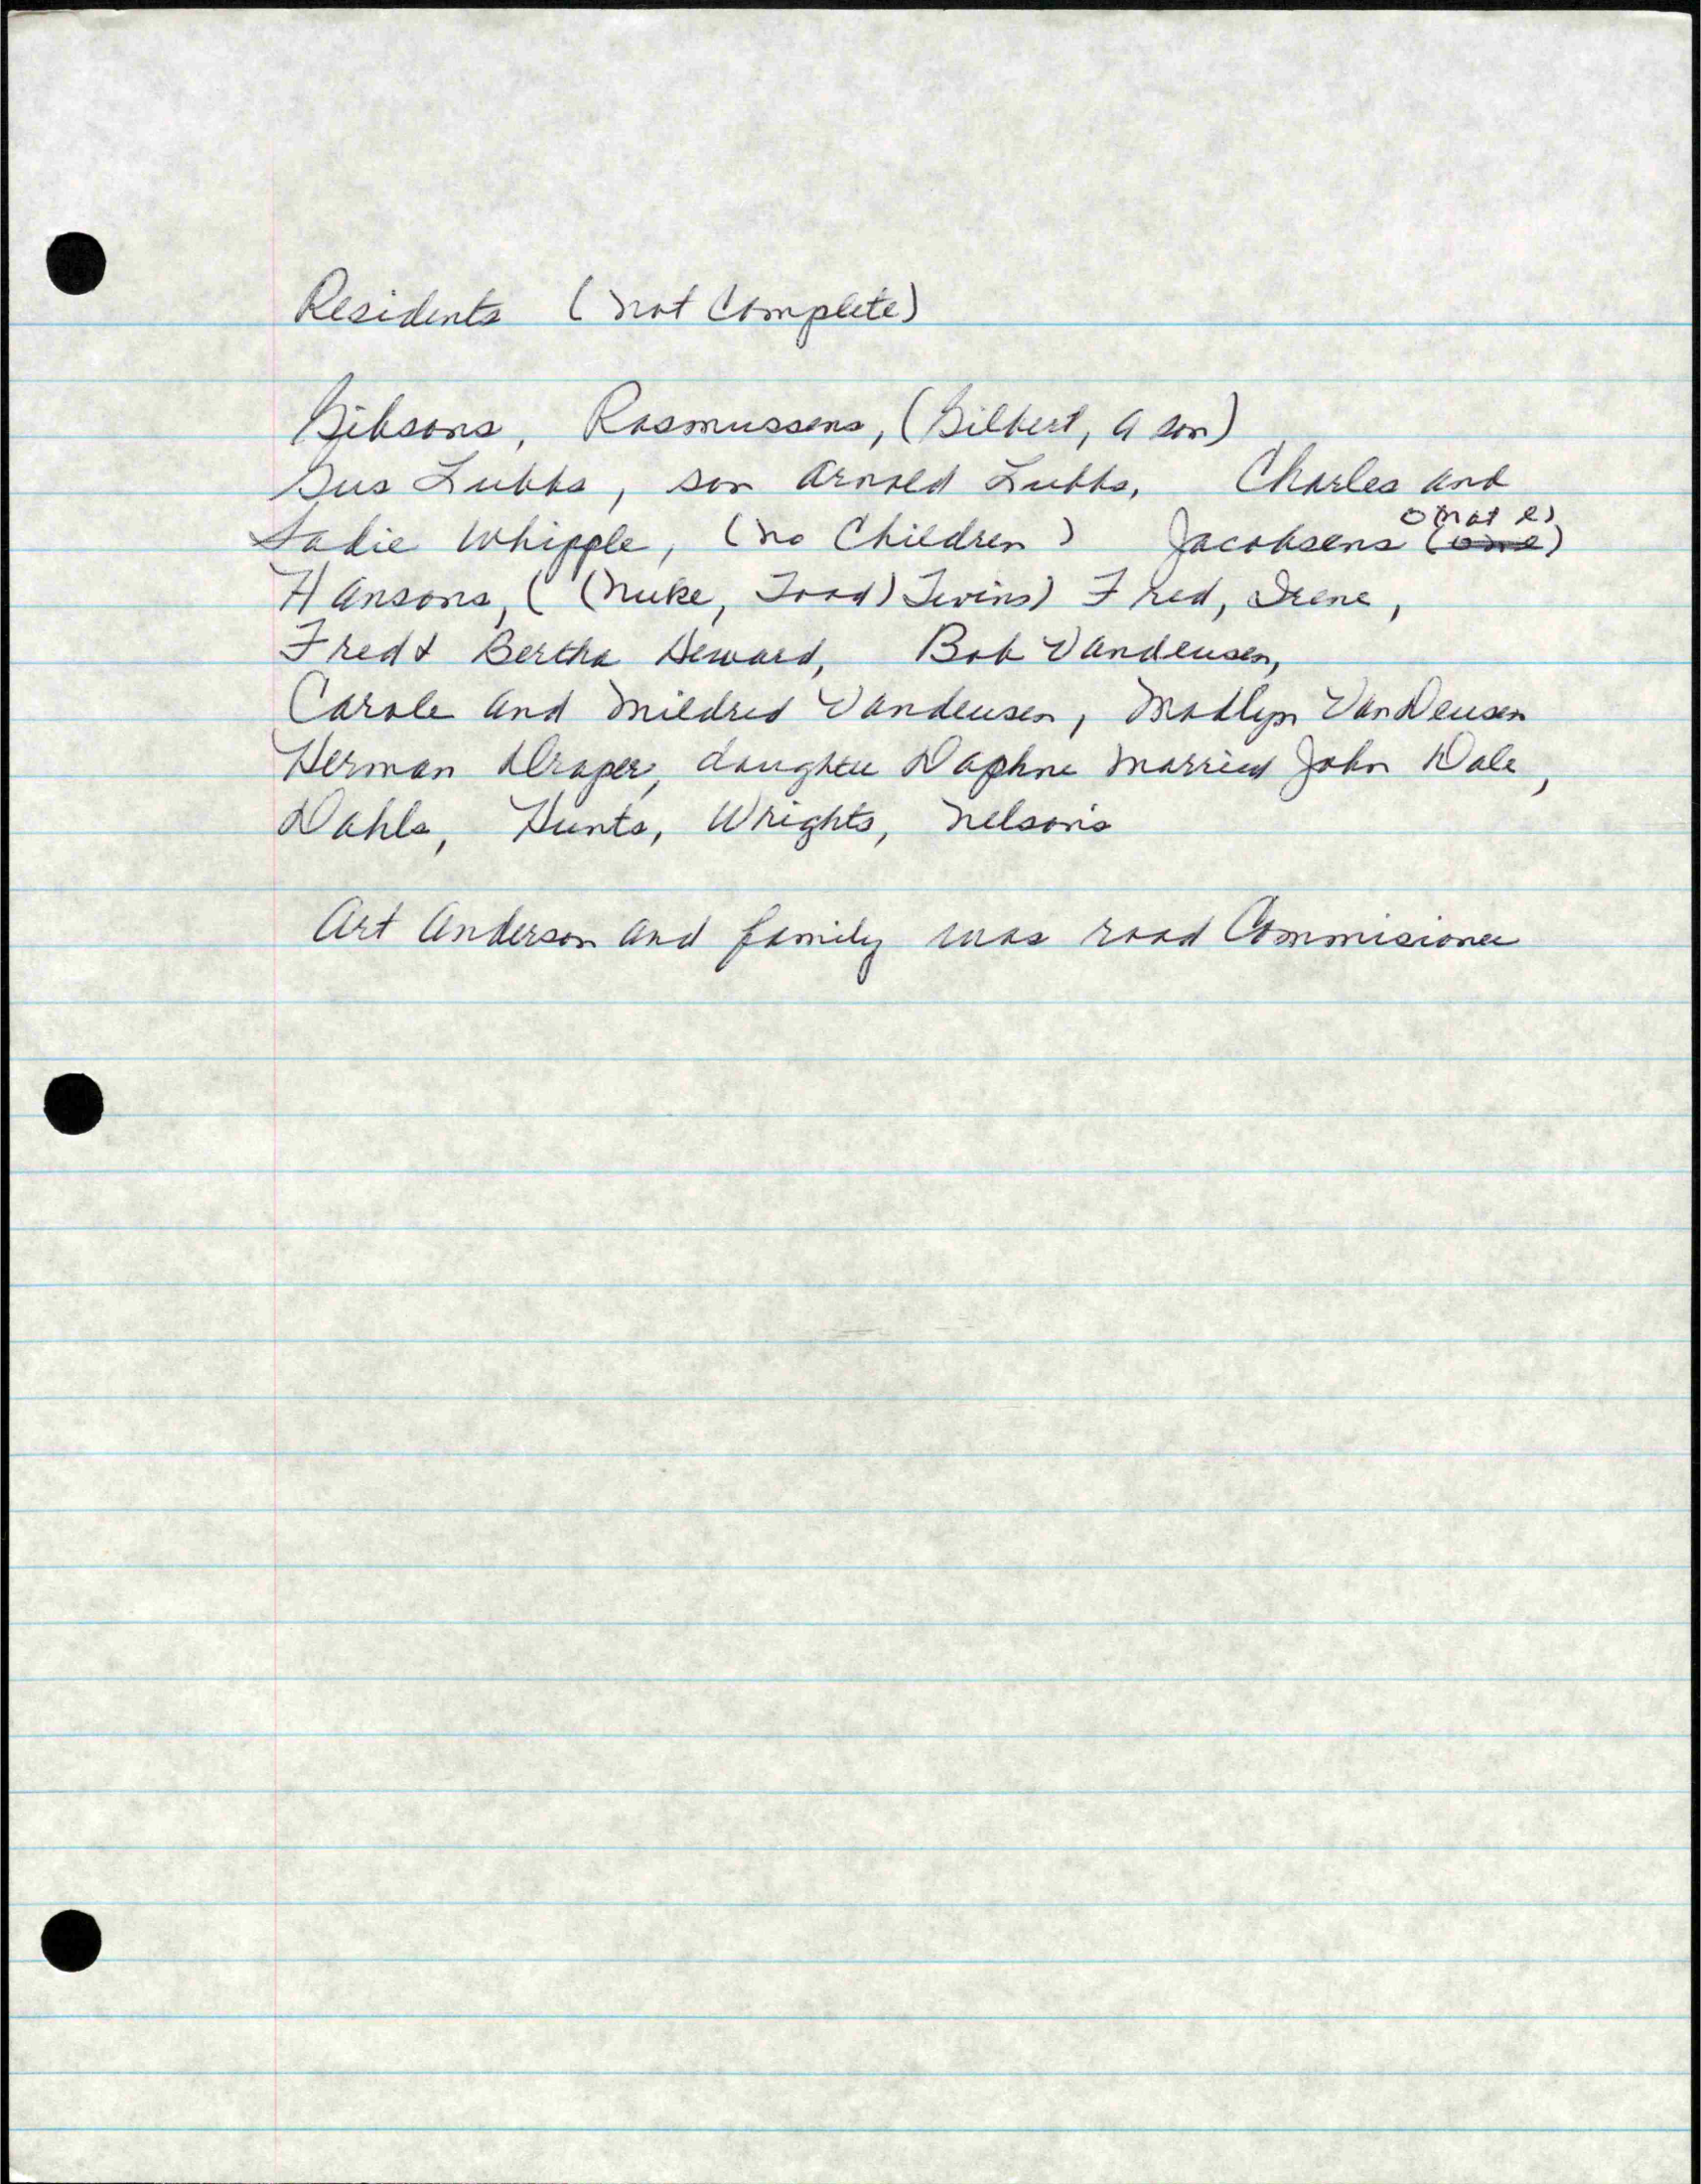 Residents (Not Complete)
Gibsons, Rasmussens, (Gilbert, a son)
Gus Lubbs, son Arnold Lubbs, Charles and
Sadie Whipple, (No Children) Jacobsens (one)
o (not e)
Hansons, ((Nuke, Tood) Twins) Fred, Irene,
Fred & Bertha Seward, Bob Vandeusen,
Carole and Mildred Vandeusen, Madlyn VanDeusen
Herman Draper, daughter Daphne married John Dale,
Dahls, Hunts, Wrights, Nelson's
Art Anderson and family was road Commisioner